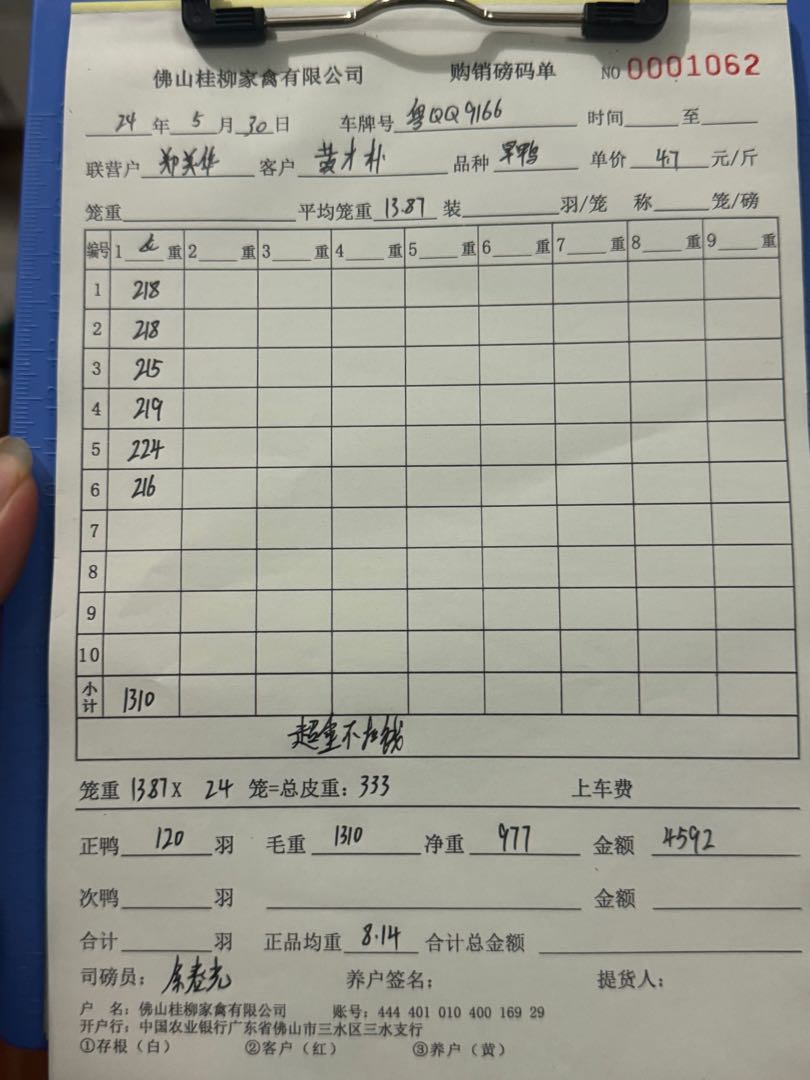 佛山桂柳家禽有限公司 购销磅码单 NO 0001062
24 年 5 月 30 日 车牌号 粤QQ9166 时间 至
联营户 郑英华 客户 黄才朴 品种 旱鸭 单价 4.7 元/斤
笼重 平均笼重 13.87 装 羽/笼 称 笼/磅
编号 1 重 2 重 3 重 4 重 5 重 6 重 7 重 8 重 9 重
1 218
2 218
3 215
4 219
5 224
6 216
7
8
9
10
小计 1310
超重不加钱
笼重 13.87 X 24 笼=总皮重: 333 上车费
正鸭 120 羽 毛重 1310 净重 977 金额 4592
次鸭 羽 金额
合计 羽 正品均重 8.14 合计总金额
司磅员: 养户签名; 提货人:
户 名: 佛山桂柳家禽有限公司 账号: 444 401 010 400 169 29
开户行: 中国农业银行广东省佛山市三水区三水支行
①存根(白) ②客户(红) ③养户(黄)